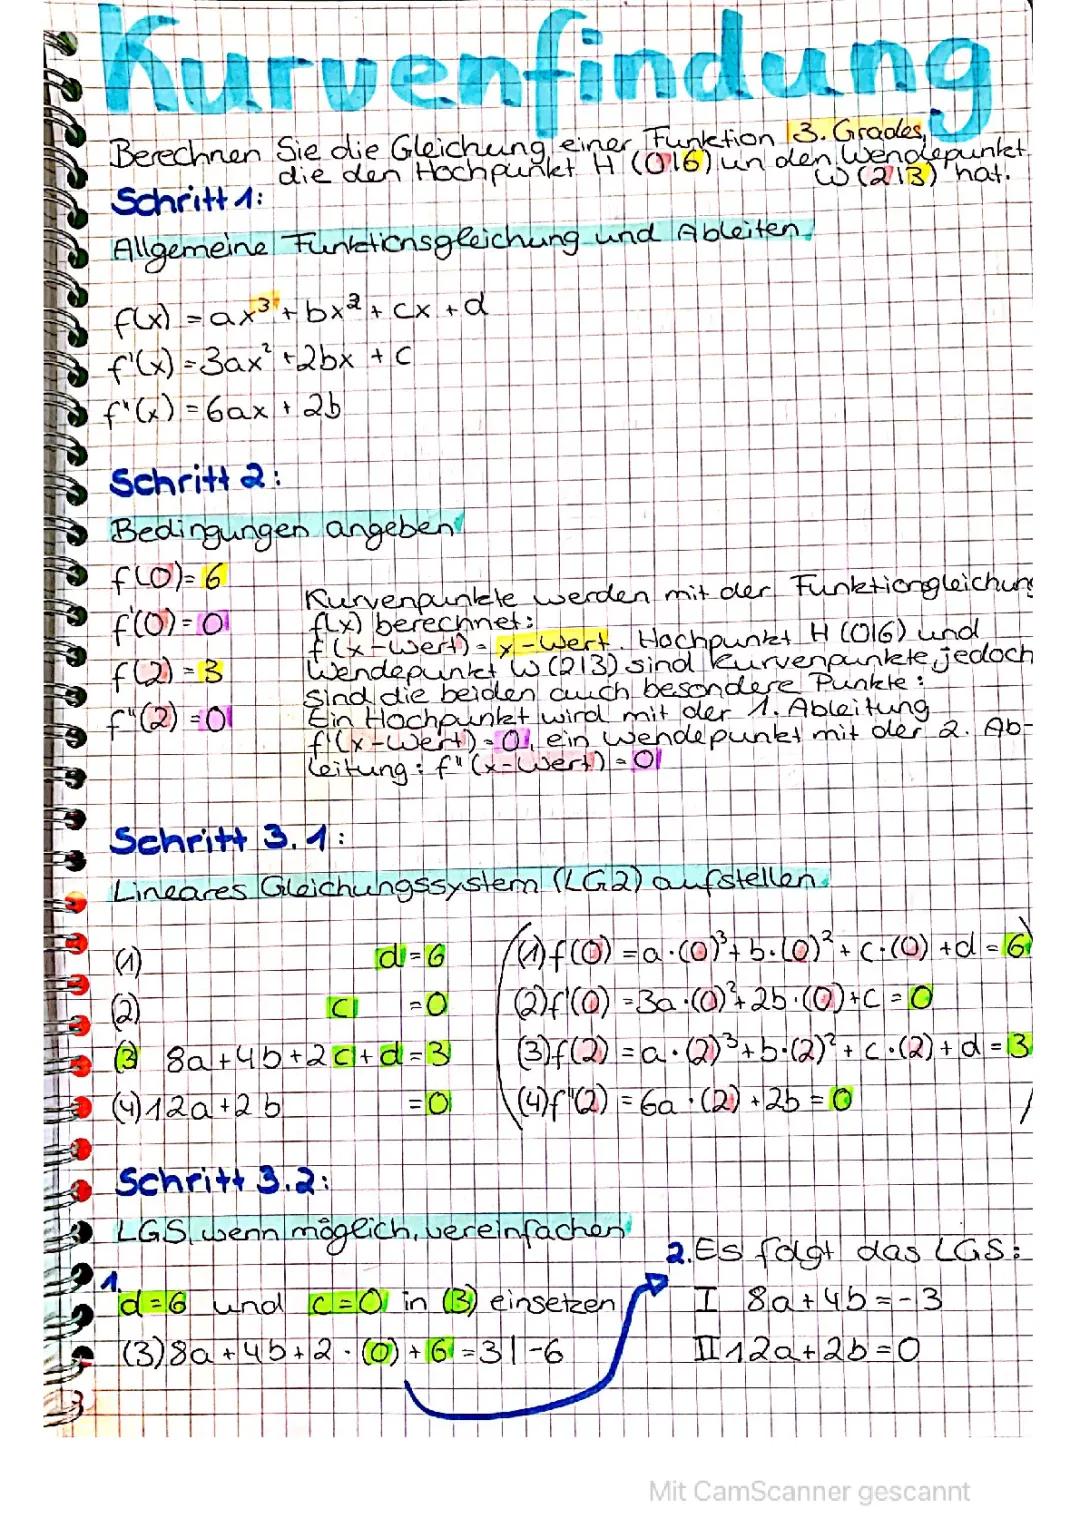 Kurvenfindung
Berechnen Sie die Gleichung einer Funktion 3. Grades,
die den Hochpunkt H (0|6) un den Wendepunkt
W (2|3) hat.
Schritt 1:
Allgemeine Funktionsgleichung und Ableiten
f(x) = ax³ + bx² + cx + d
f'(x) = 3ax² + 2bx + c
f"(x) = 6ax + 2b
Schritt 2:
Bedingungen angeben
f(0) = 6
f'(0) = 0
f(2) = 3
f"(2) = 0
Kurvenpunkte werden mit der Funktiongleichung
f(x) berechnet:
f(x-Wert) = y-Wert. Hochpunkt H (0|6) und
Wendepunkt W (2|3) sind Kurvenpunkte, jedoch
sind die beiden auch besondere Punkte:
Ein Hochpunkt wird mit der 1. Ableitung
f'(x-Wert) = 0, ein Wendepunkt mit der 2. Ab-
leitung: f"(x-Wert) = 0
Schritt 3.1:
Lineares Gleichungssystem (LG2) aufstellen.
(1) d = 6
(2) c = 0
(3) 8a + 4b + 2c + d = 3
(4) 12a + 2b = 0
(1) f(0) = a·(0)³ + b·(0)² + c·(0) + d = 6
(2) f'(0) = 3a·(0)² + 2b·(0) + c = 0
(3) f(2) = a·(2)³ + b·(2)² + c·(2) + d = 3
(4) f"(2) = 6a·(2) + 2b = 0
Schritt 3.2:
LGS, wenn möglich, vereinfachen
1.
d = 6 und c = 0 in (3) einsetzen
(3) 8a + 4b + 2·(0) + 6 = 3 | -6
2. Es folgt das LGS:
I 8a + 4b = -3
II 12a + 2b = 0
Mit CamScanner gescannt